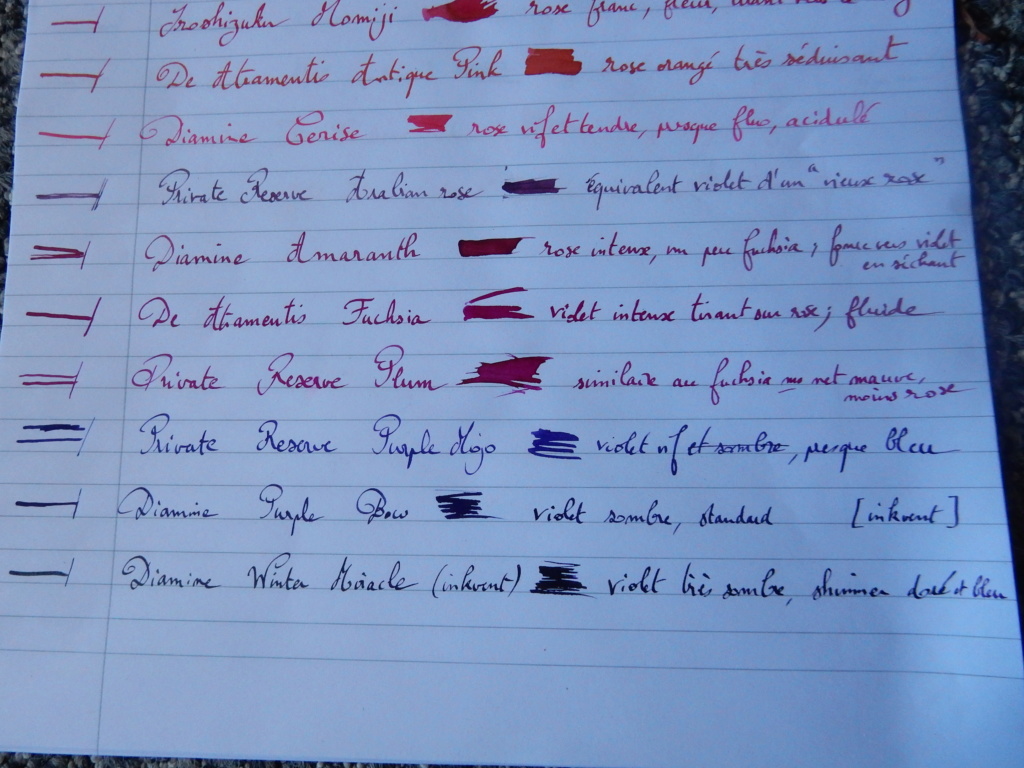 Iroshizuku Momiji rose franc, fleur,
De Atramentis Antique Pink rose orangé très séduisant
Diamine Cerise rose vif et tendre, presque fluo, acidulé
Private Reserve Arabian rose équivalent violet d'un "vieux rose"
Diamine Amaranth rose intense, un peu fuchsia ; fonce vers violet
en séchant
De Atramentis Fuchsia violet intense tirant sur rose ; fluide
Private Reserve Plum similaire au fuchsia net mauve,
moins rose
Private Reserve Purple Mojo violet vif et sombre, presque bleu
Diamine Purple Bow violet sombre, standard [inkvent]
Diamine Winter Miracle (inkvent) violet très sombre, shimmer doré et bleu